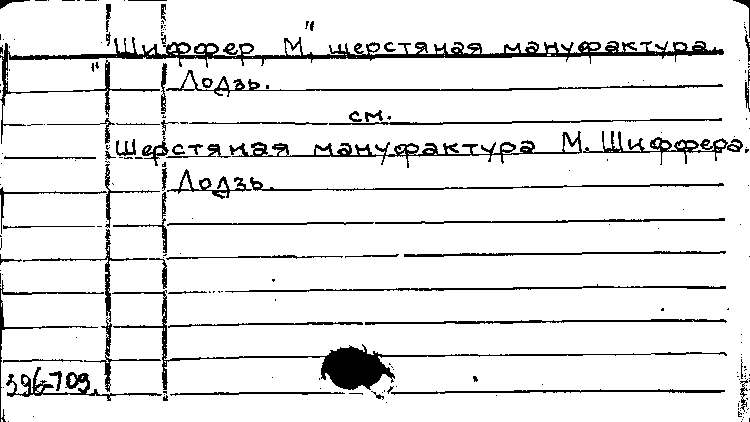 "Шиффер, М", шерстяная мануфактура.
Лодзь.
см.
Шерстяная мануфактура М. Шиффера.
Лодзь.
396-709.